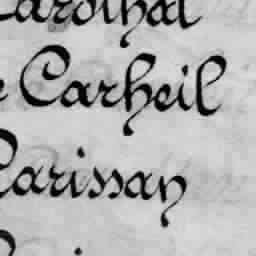 Cardinal
e Carheil
Carissan